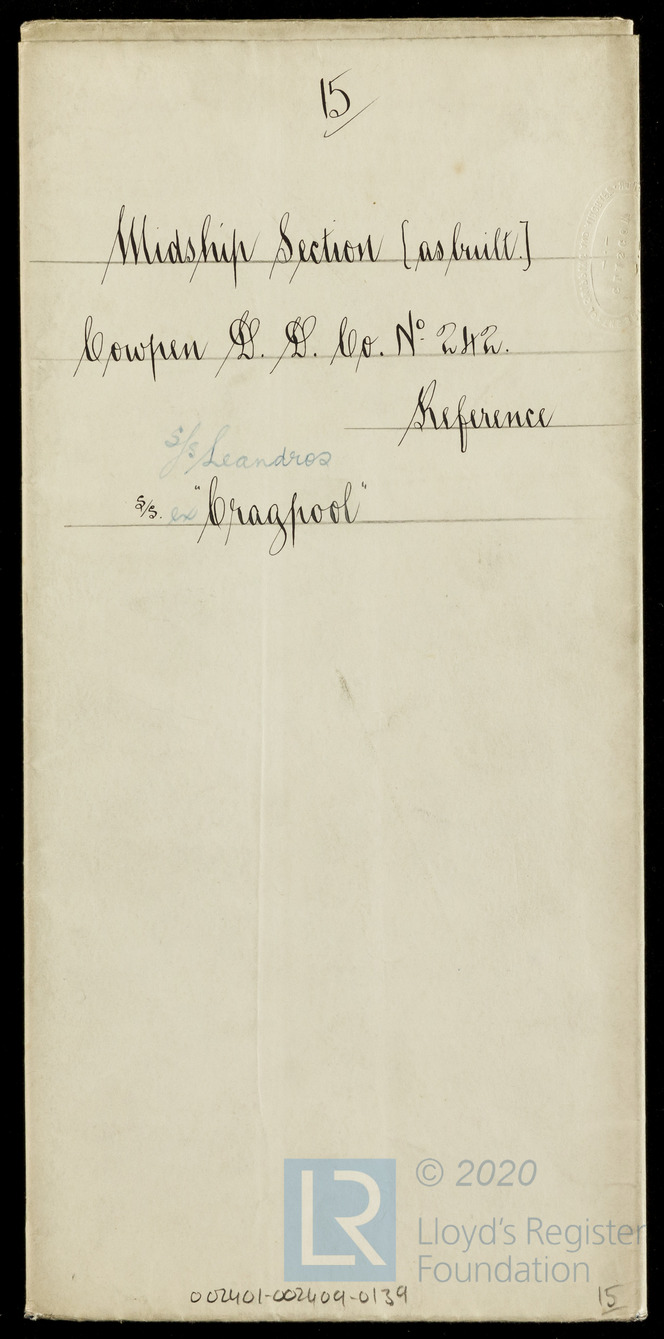 15
Midship Section [as built.]
Cowpen D. D. Co. Nº 242.
Reference
S/s Leandros
S/S. ex "Cragpool"
LR
© 2020
Lloyd's Register
Foundation
002401-002409-0139
15